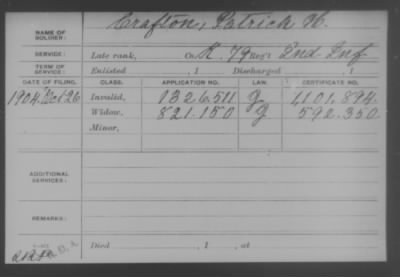 NAME OF SOLDIER: Crafton, Patrick H.
SERVICE: Late rank, Co. K. 79 Reg't 2nd Inf
TERM OF SERVICE: Enlisted , 1 Discharged , 1
DATE OF FILING. CLASS. APPLICATION NO. LAW. CERTIFICATE NO.
1904 Oct 26 Invalid, 1326.511 G 1,101,894.
Widow, 821.150 G 592.350
Minor,
ADDITIONAL SERVICES:
REMARKS:
Died , 1 , at